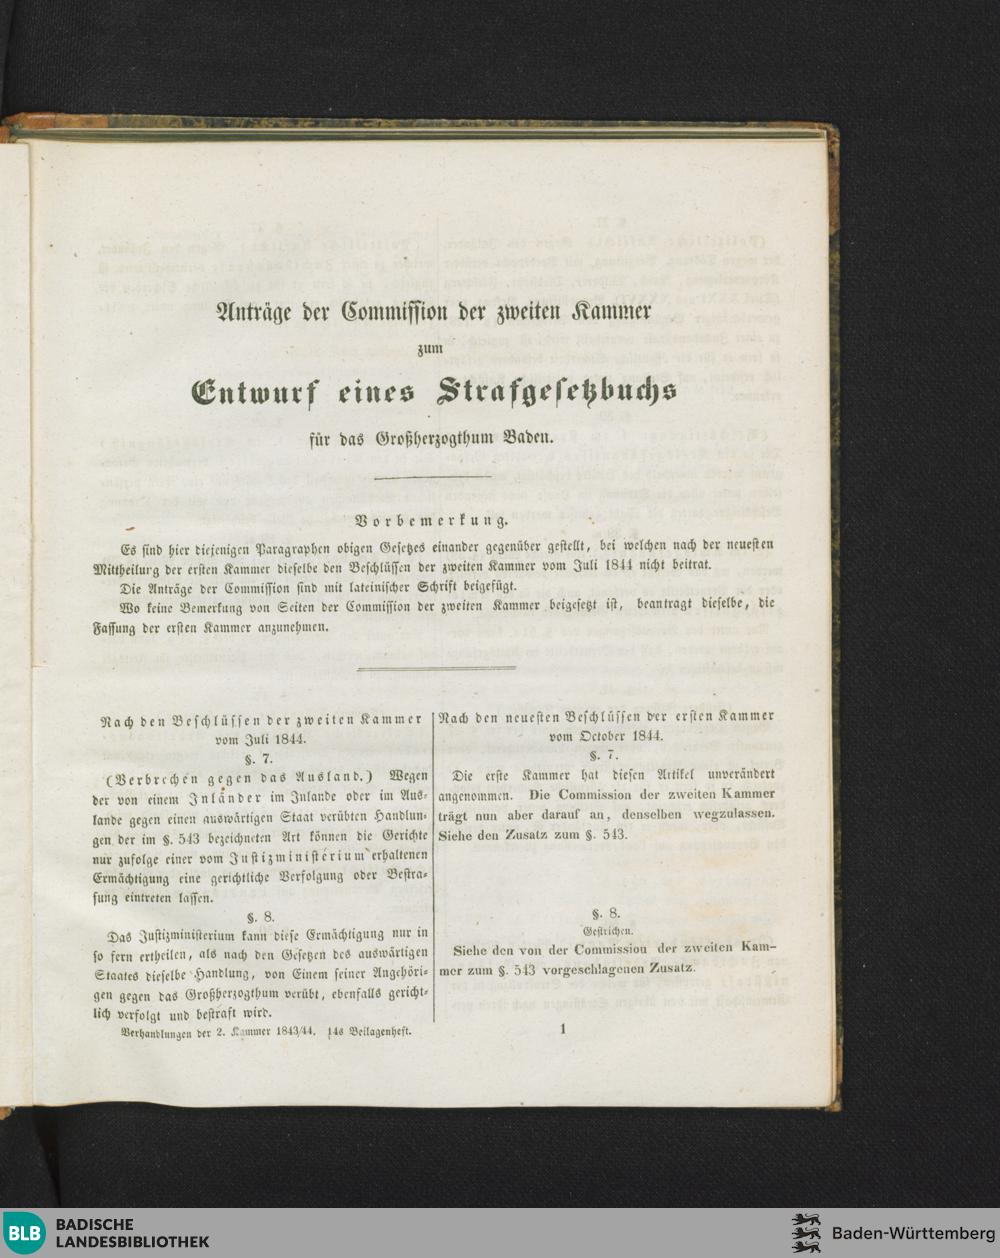 Anträge der Commission der zweiten Kammer
zum
Entwurf eines Strafgesetzbuchs
für das Großherzogthum Baden.
Vorbemerkung.
Es sind hier diejenigen Paragraphen obigen Gesetzes einander gegenüber gestellt, bei welchen nach der neuesten
Mittheilung der ersten Kammer dieselbe den Beschlüssen der zweiten Kammer vom Juli 1844 nicht beitrat.
Die Anträge der Commission sind mit lateinischer Schrift beigefügt.
Wo keine Bemerkung von Seiten der Commission der zweiten Kammer beigesetzt ist, beantragt dieselbe, die
Fassung der ersten Kammer anzunehmen.
Nach den Beschlüssen der zweiten Kammer
vom Juli 1844.
§. 7.
(Verbrechen gegen das Ausland.) Wegen
der von einem Inländer im Inlande oder im Aus-
lande gegen einen auswärtigen Staat verübten Handlun-
gen der im §. 543 bezeichneten Art können die Gerichte
nur zufolge einer vom Justizministerium erhaltenen
Ermächtigung eine gerichtliche Verfolgung oder Bestra-
fung eintreten lassen.
§. 8.
Das Justizministerium kann diese Ermächtigung nur in
so fern ertheilen, als nach den Gesetzen des auswärtigen
Staates dieselbe Handlung, von Einem seiner Angehöri-
gen gegen das Großherzogthum verübt, ebenfalls gericht-
lich verfolgt und bestraft wird.
Nach den neuesten Beschlüssen der ersten Kammer
vom October 1844.
§. 7.
Die erste Kammer hat diesen Artikel unverändert
angenommen. Die Commission der zweiten Kammer
trägt nun aber darauf an, denselben wegzulassen.
Siehe den Zusatz zum §. 543.
§. 8.
Gestrichen.
Siehe den von der Commission der zweiten Kam-
mer zum §. 543 vorgeschlagenen Zusatz.
Verhandlungen der 2. Kammer 1843/44. 14s Beilagenheft.
1
BLB
BADISCHE
LANDESBIBLIOTHEK
Baden-Württemberg